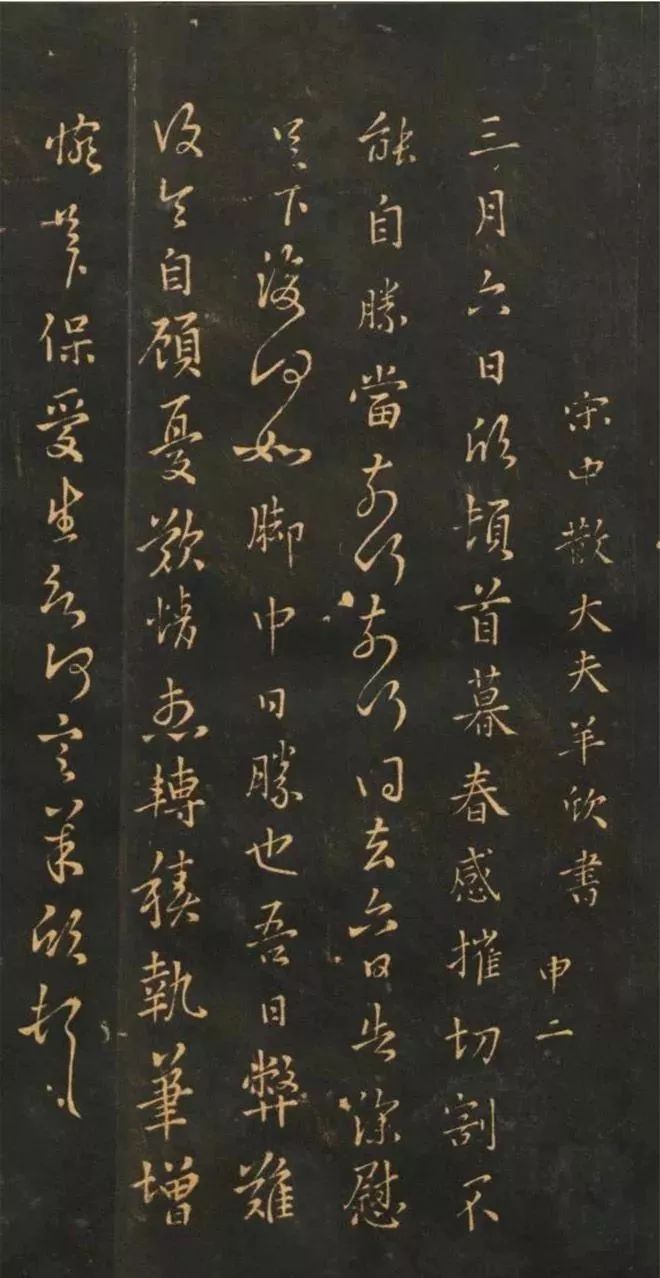 宋中散大夫羊欣書
申二
三月六日欣頓首暮春感摧切割不
能自勝當奈何奈何得去六日告深慰
足下復何如脚中日勝也吾日弊難
復令自顧憂歎情想轉積執筆增
惋足下保愛何言羊欣頓首